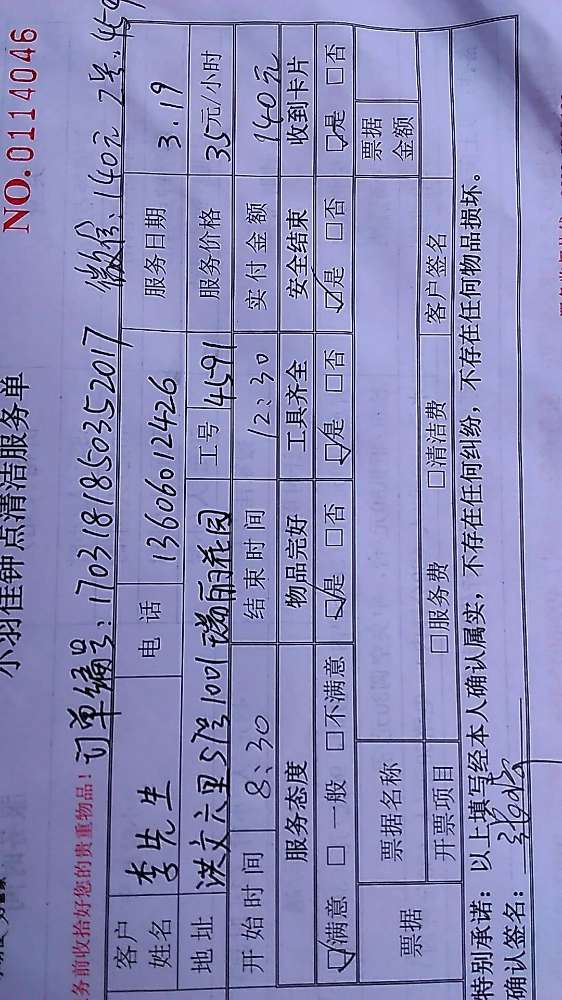 小羽佳钟点清洁服务单
NO.0114046
务前收拾好您的贵重物品!
订单编号:1703181850352017 微信:140元
客户姓名 李先生 电话 13606012426 服务日期 3.19
地址 洪文六里51号1001 瑞丽花园 工号 4591 服务价格 35元/小时
开始时间 8:30 结束时间 12:30 实付金额 140元
服务态度 物品完好 工具齐全 安全结束 收到卡片
☑满意 □一般 □不满意 ☑是 □否 ☑是 □否 ☑是 □否 ☑是 □否
票据 票据名称 票据金额
开票项目 □服务费 □清洁费 客户签名
特别承诺: 以上填写经本人确认属实,不存在任何纠纷,不存在任何物品损坏。
确认签名: